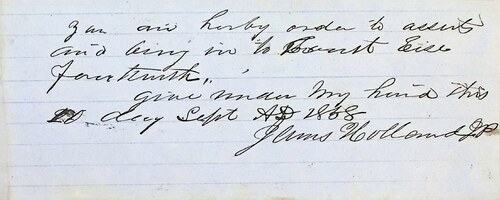 you are herby order to assert
and bring in to Court Eise
forthwith.
Give under My hand this
20 day Sept AD 1868
James Holland JP